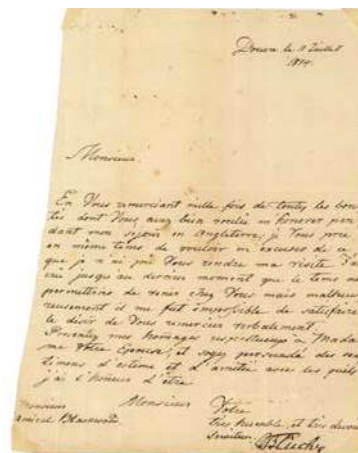 Douvre le 11 Juillet
1814.
Monsieur
En Vous remerciant mille fois de toutes les bon-
tés dont Vous avez bien voulu m'honorer pen-
dant mon sejour en Angleterre, je Vous prie
en même tems de vouloir m'excuser de ce
que je n'ai pu Vous rendre ma visite. J'ai
crû jusqu'au dernier moment que le tems me
permettroit de venir chez Vous mais malheu-
reusement il me fut impossible de satisfaire
le désir de Vous remercier verbalement.
Presentez mes homages respectueux à Mada-
me Votre Epouse, et soyez persuadé des sen-
timens d'estime et d'amitié avec les quels
j'ai l'honneur d'être
Monsieur Votre
très humble, et très devoué
Serviteur
Monsieur
Blackwood.